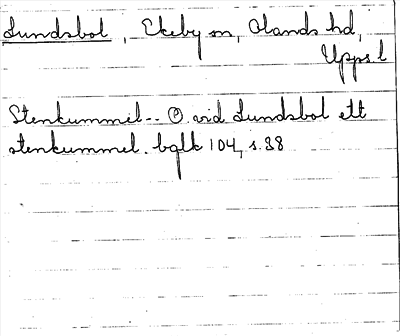 Lundsbol, Ekeby sn, Olands hd,
Upps. l
Stenkummel-- O. vid Lundsbol ett
stenkummel. bqlk 104, s. 38